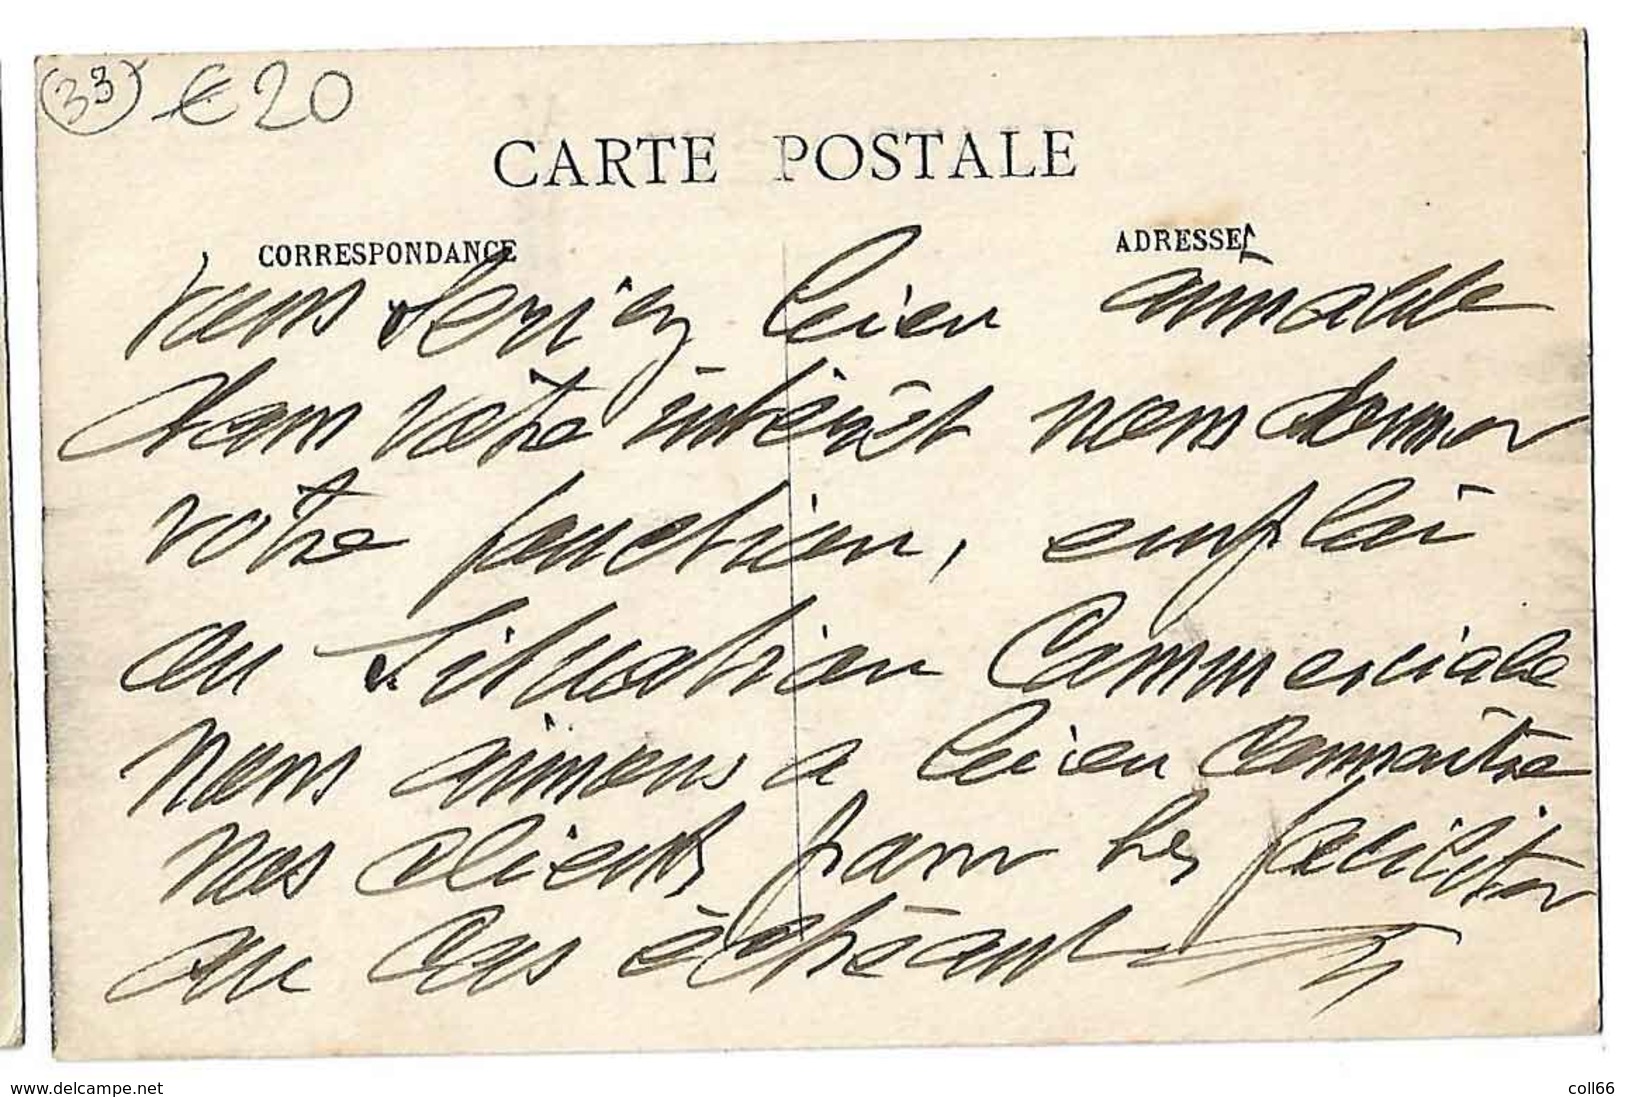 (33) € 20
CARTE POSTALE
CORRESPONDANCE
ADRESSE
vous seriez bien aimable
dans votre intérêt nous donner
votre fonction, emploi
ou situation Commerciale
nous aimons a bien connaître
nos clients pour les féliciter
au cas échéant
www.delcampe.net
coll66